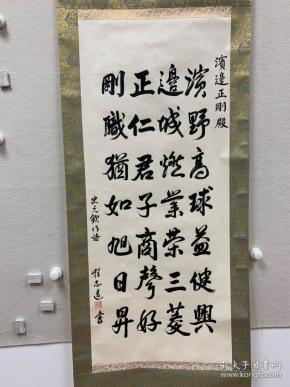 濱邊正剛殿
濱野高球益健興
邊城燃業榮三菱
正仁君子商聲好
剛職猶如旭日昇
史元錢作詩
程志遠書
孔夫子旧书网